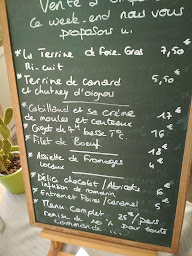 Vente à
ce week-end nous vous
proposons :
* La Terrine et foie-Gras 7,50€
Mi-cuit
* Terrine de canard 5,50€
et chutney d'oignons
* Cabillaud et sa crème 17€
de moules et coques
* Gigot de 7H basse T°C 16€
* Filet de Boeuf 18€
* Assiette de Fromages 4€
locaux
* Délice chocolat / Abricots 6€
infusion de romarin
* Entremet Poires / caramel 5€
* Menu complet 25€ / pers
remise de 10% pour toute
commande